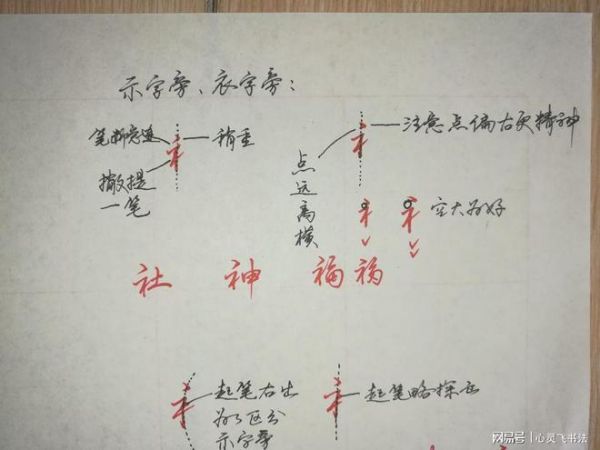 示字旁、衣字旁：
笔断意连
稍重
撇提
一笔
注意点偏右更精神
点
远
离
横
礻
礻
空大为好
社 神 福 祸
起笔右出
为了区分
示字旁
起笔略探出
网易号 | 心灵飞书法